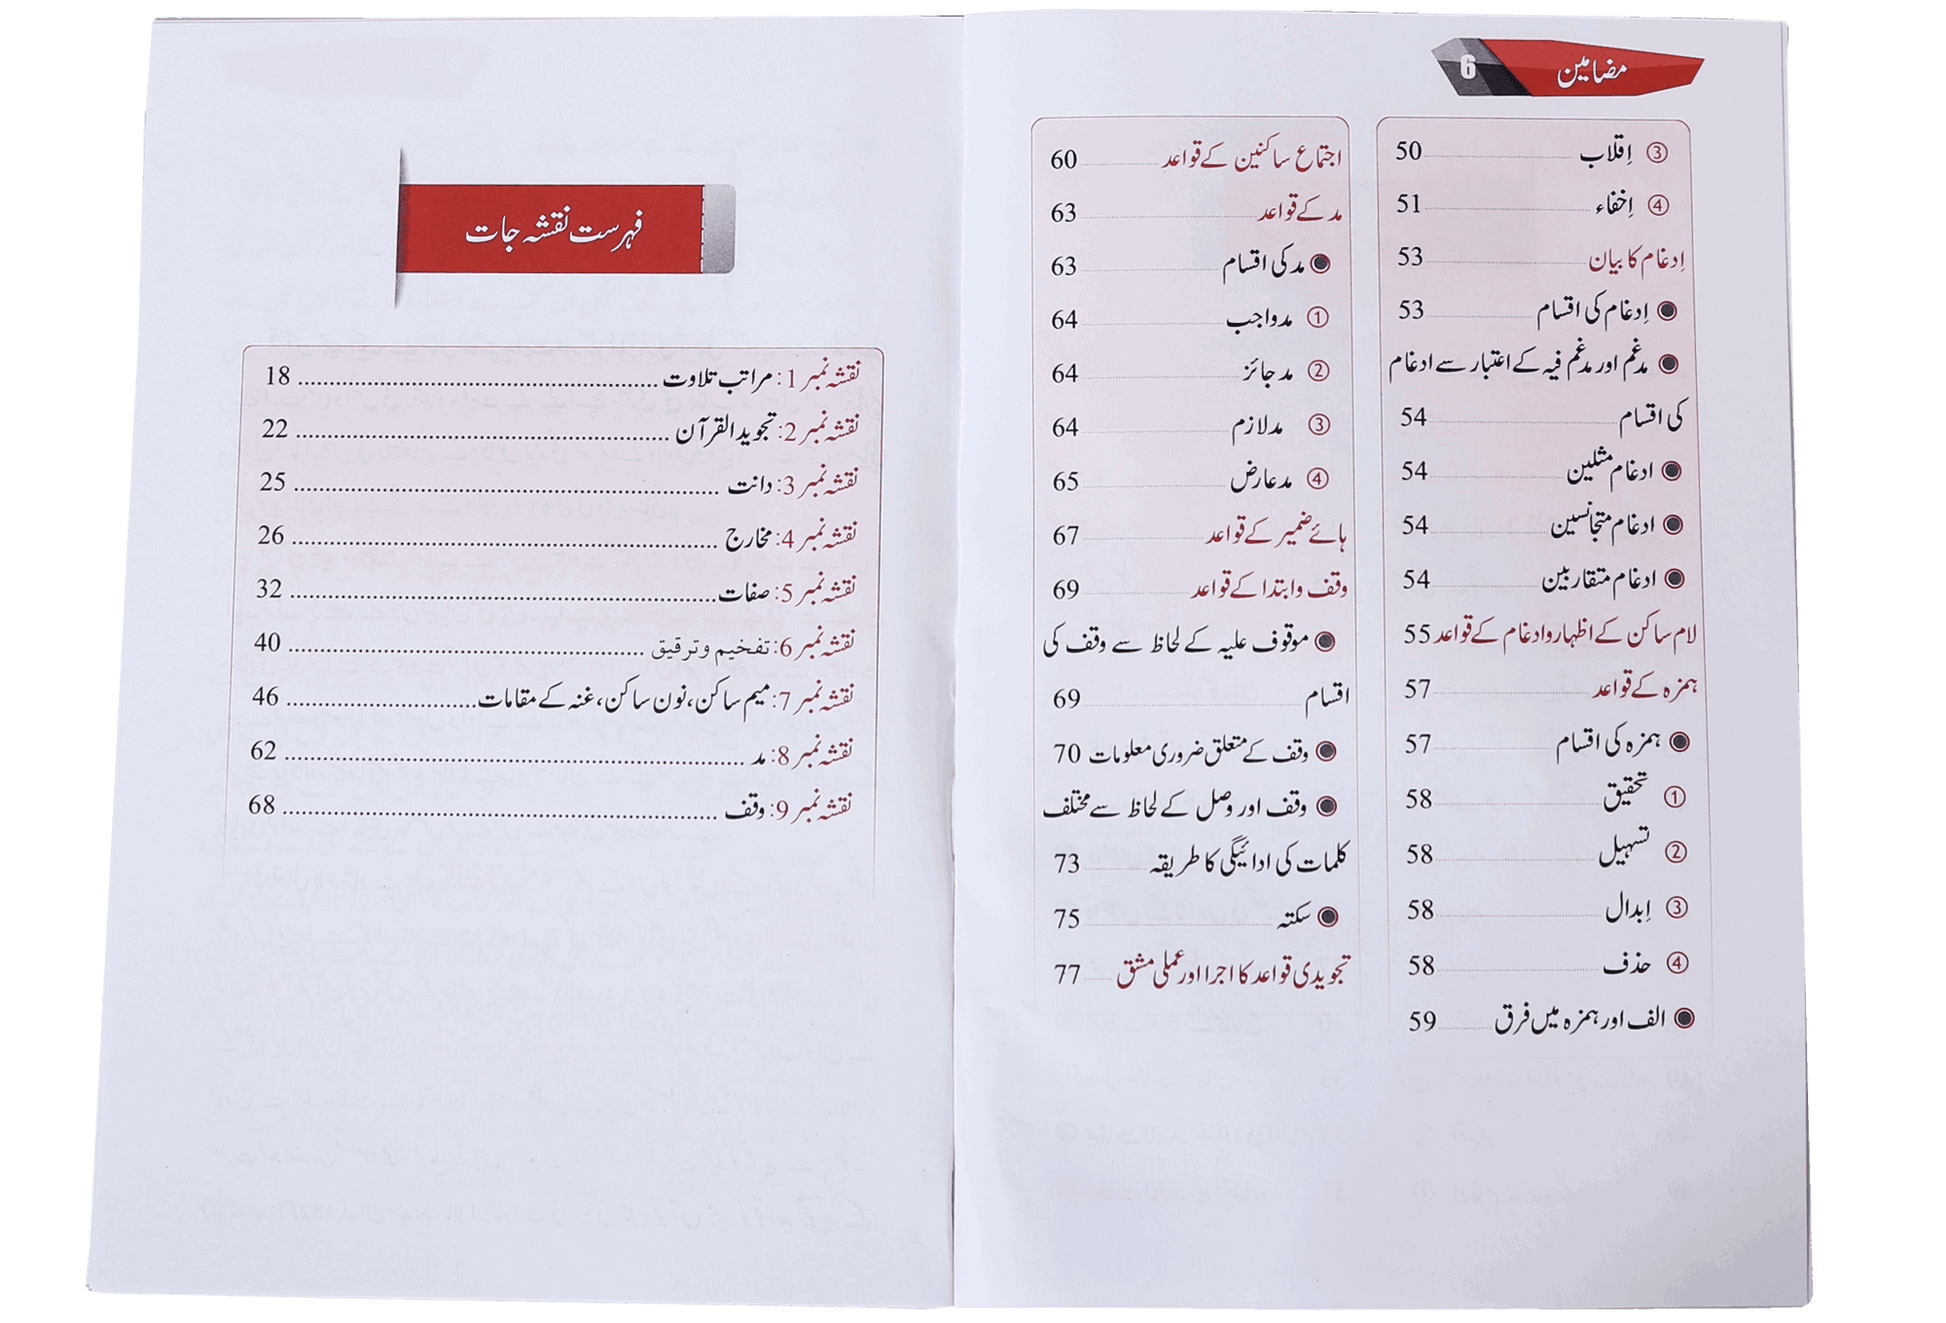 مضامین 6
③ اِقلاب 50
④ اِخفاء 51
اِدغام کا بیان 53
● اِدغام کی اقسام 53
● مدغم اور مدغم فیہ کے اعتبار سے ادغام
کی اقسام 54
● ادغام مثلین 54
● ادغام متجانسین 54
● ادغام متقاربین 54
لام ساکن کے اظہار وادغام کے قواعد 55
ہمزہ کے قواعد 57
● ہمزہ کی اقسام 57
① تحقیق 58
② تسہیل 58
③ اِبدال 58
④ حذف 58
● الف اور ہمزہ میں فرق 59
اجتماع ساکنین کے قواعد 60
مد کے قواعد 63
● مد کی اقسام 63
① مد واجب 64
② مد جائز 64
③ مد لازم 64
④ مد عارض 65
ہائے ضمیر کے قواعد 67
وقف و ابتدا کے قواعد 69
● موقوف علیہ کے لحاظ سے وقف کی
اقسام 69
● وقف کے متعلق ضروری معلومات 70
● وقف اور وصل کے لحاظ سے مختلف
کلمات کی ادائیگی کا طریقہ 73
● سکتہ 75
تجویدی قواعد کا اجرا اور عملی مشق 77
فہرست نقشہ جات
نقشہ نمبر 1: مراتب تلاوت 18
نقشہ نمبر 2: تجوید القرآن 22
نقشہ نمبر 3: دانت 25
نقشہ نمبر 4: مخارج 26
نقشہ نمبر 5: صفات 32
نقشہ نمبر 6: تفخیم و ترقیق 40
نقشہ نمبر 7: میم ساکن، نون ساکن، غنہ کے مقامات 46
نقشہ نمبر 8: مد 62
نقشہ نمبر 9: وقف 68